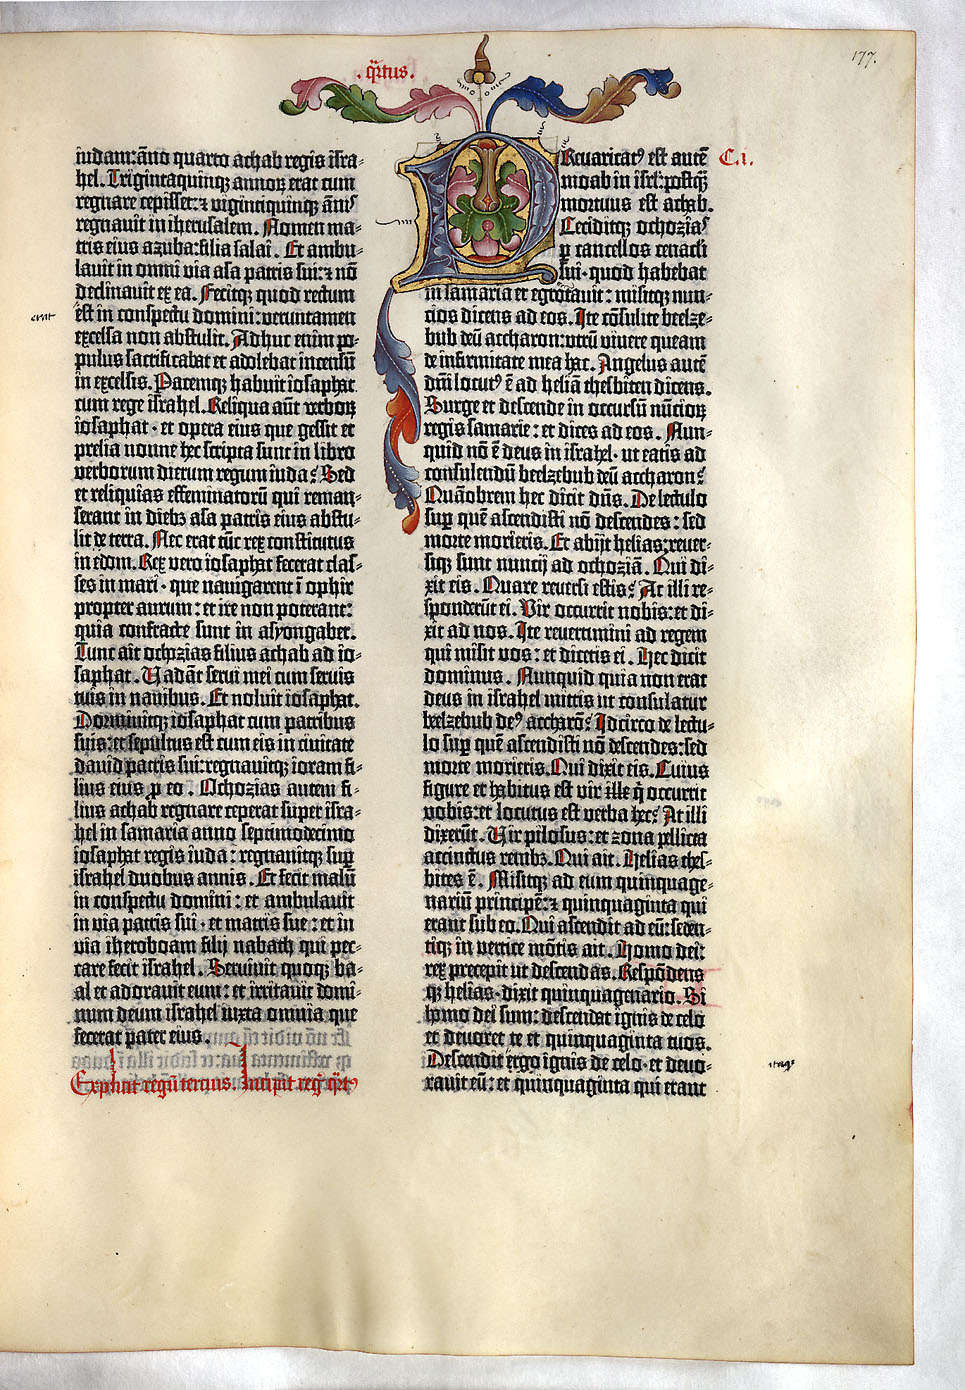 .q̄rtus.
177.
iudam: āno quarto achab regis isra-
hel. Trigintaquinq annoꝝ erat cum
regnare cepisset: ⁊ vigintiquinq ānis
regnauit in iherusalem. Nomen ma-
tris eius azuba: filia salai. Et ambu-
lauit in omni via asa patris sui: ⁊ nō
declinauit ex ea. Fecitq quod rectum
est in conspectu domini: veruntamen
erat
excelsa non abstulit. Adhuc enim po-
pulus sacrificabat et adolebat incensū
in excelsis. Pacemq habuit iosaphat
cum rege israhel. Reliqua aūt verboꝝ
iosaphat · et opera eius que gessit et
prelia nonne hec scripta sunt in libro
verborum dierum regum iuda? Sed
et reliquias effeminatorū qui reman-
serant in dieb₃ asa patris eius abstu-
lit de terra. Nec erat tūc rex constitutus
in edom. Rex vero iosaphat fecerat clas-
ses in mari · que nauigarent ī ophir
propter aurum: et ire non poterant:
quia confracte sunt in asyongaber.
Tunc ait ochozias filius achab ad io-
saphat. Vadāt serui mei cum seruis
tuis in nauibus. Et noluit iosaphat.
Dormiuitq iosaphat cum patribus
suis: et sepultus est cum eis in ciuitate
dauid patris sui: regnauitq ioram fi-
lius eius p eo. Ochozias autem fi-
lius achab regnare ceperat super isra-
hel in samaria anno septimodecimo
iosaphat regis iuda: regnauitq sup
israhel duobus annis. Et fecit malū
in conspectu domini: et ambulauit
in via patris sui · et matris sue: et in
via iheroboam filij nabath qui pec-
care fecit israhel. Seruiuit quoq ba-
al et adorauit eum: et irritauit domi-
num deum israhel iuxta omnia que
fecerat pater eius.
Explicit regū tercius. Incipit regū q̄rtꝰ
PReuaricatꝰ est autē
C.i.
moab in isrl: postq̄
mortuus est achab.
Ceciditq ochoziaꝰ
p cancellos cenacli
sui · quod habebat
in samaria et egrotauit: misitq nun-
cios dicens ad eos. Ite cōsulite beelze-
bub deū accharon: utrū viuere queam
de infirmitate mea hac. Angelus autē
dn̄i locutꝰ ē ad heliā thesbiten dicens.
Surge et descende in occursū nūcioꝝ
regis samarie: et dices ad eos. Nun-
quid nō ē deus in israhel · ut eatis ad
consulendū beelzebub deū accharon?
Quāobrem hec dicit dn̄s. De lectulo
sup quē ascendisti nō descendes: sed
morte morieris. Et abijt helias: reuer-
siq sunt nuncij ad ochoziā. Qui di-
xit eis. Quare reuersi estis? At illi re-
sponderūt ei. Vir occurrit nobis: et di-
xit ad nos. Ite reuertimini ad regem
qui misit vos: et dicetis ei. Hec dicit
dominus. Nunquid quia non erat
deus in israhel mittis ut consulatur
beelzebub deꝰ accharō? Idcirco de lectu-
lo sup quē ascendisti nō descendes: sed
morte morieris. Qui dixit eis. Cuius
figure et habitus est vir ille q̄ occurrit
vobis: et locutus est verba hec? At illi
dixerūt. Vir pilosus: et zona pellicea
accinctus renib₃. Qui ait. Helias thes-
bites ē. Misitq ad eum quinquage-
nariū principē: ⁊ quinquaginta qui
erant sub eo. Qui ascendit ad eū: seden-
tiq in vertice mōtis ait. Homo dei:
rex precepit ut descendas. Respōdens
q helias · dixit quinquagenario. Si
homo dei sum: descendat ignis de celo
et deuoret te et quinquaginta tuos.
Descendit ergo ignis de celo · et deuo-
itaqꝫ
rauit eū: et quinquaginta qui erant